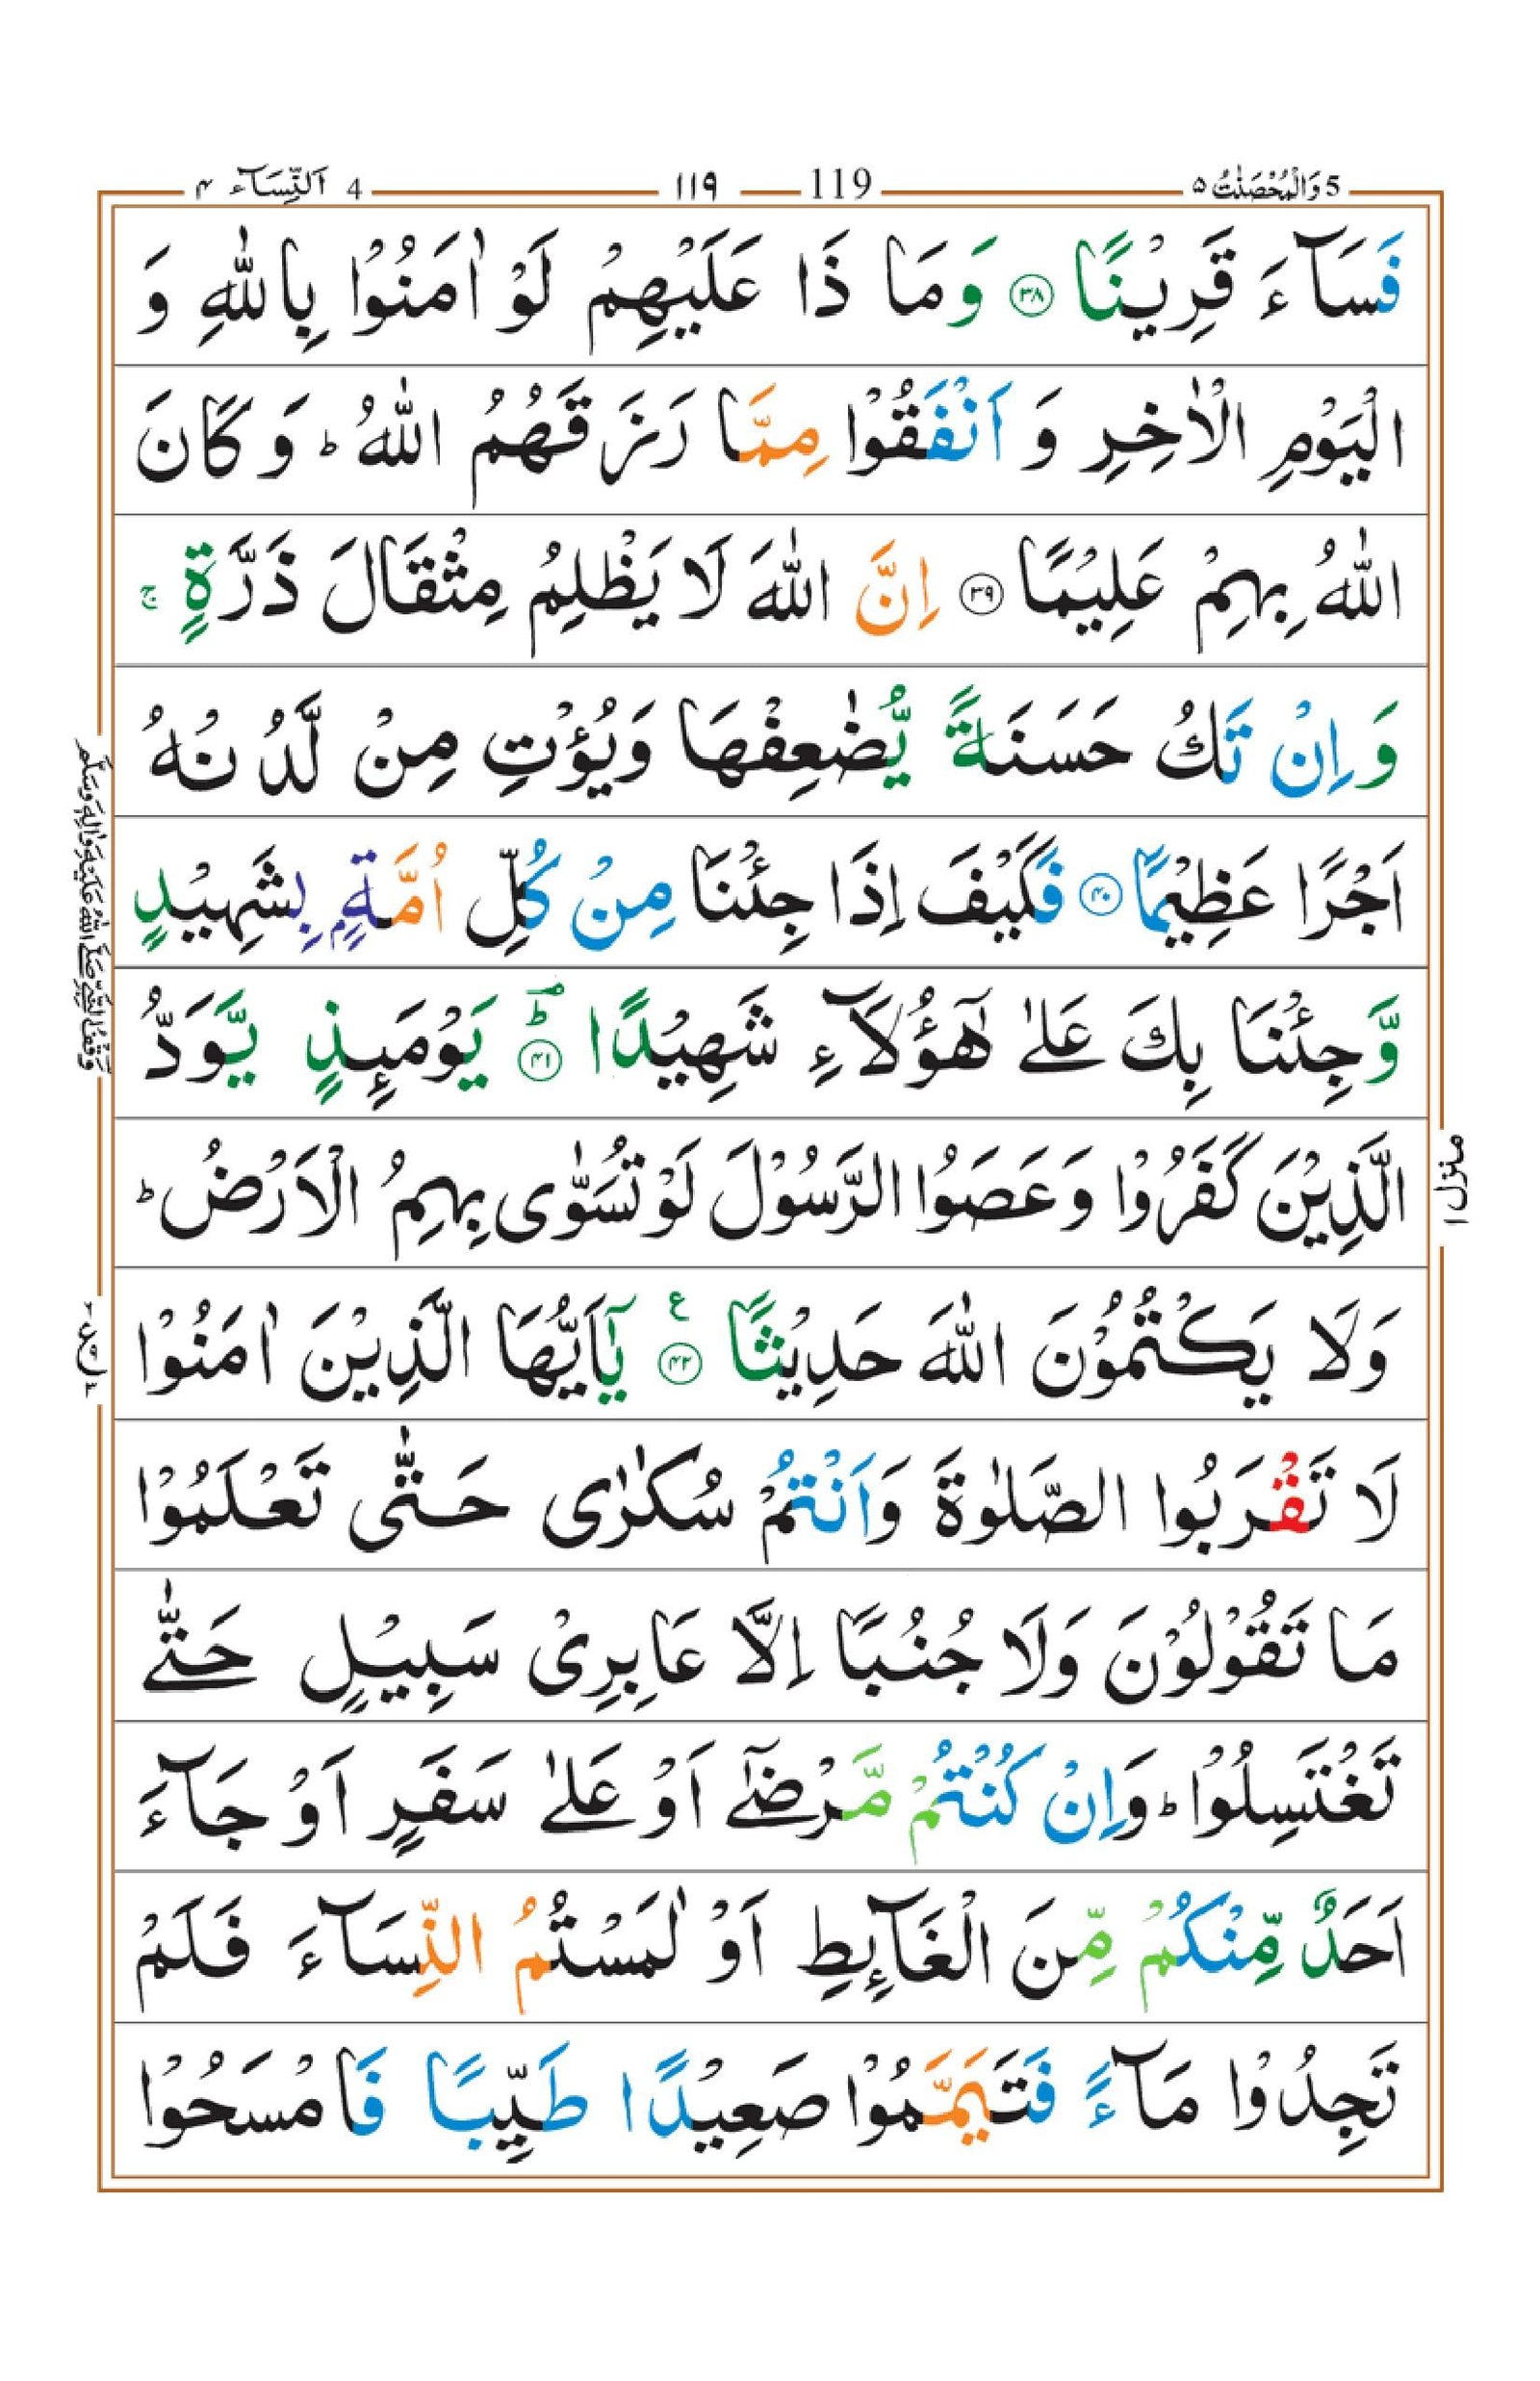 5 وَالْمُحْصَنٰتُ ۵ 119 ۱۱۹ 4 اَلنِّسَآء ۴
فَسَآءَ قَرِیْنًا ﴿۳۸﴾ وَمَا ذَا عَلَیْهِمْ لَوْ اٰمَنُوْا بِاللّٰهِ وَ
الْیَوْمِ الْاٰخِرِ وَ اَنْفَقُوْا مِمَّا رَزَقَهُمُ اللّٰهُ ؕ وَ كَانَ
اللّٰهُ بِهِمْ عَلِیْمًا ﴿۳۹﴾ اِنَّ اللّٰهَ لَا یَظْلِمُ مِثْقَالَ ذَرَّةٍ ۚ
وَ اِنْ تَكُ حَسَنَةً یُّضٰعِفْهَا وَیُؤْتِ مِنْ لَّدُنْهُ
اَجْرًا عَظِیْمًا ﴿۴۰﴾ فَكَیْفَ اِذَا جِئْنَا مِنْ كُلِّ اُمَّةٍۭ بِشَهِیْدٍ
وَّجِئْنَا بِكَ عَلٰی هٰۤؤُلَآءِ شَهِیْدًا ﴿۴۱﴾ؕ یَوْمَىِٕذٍ یَّوَدُّ
الَّذِیْنَ كَفَرُوْا وَعَصَوُا الرَّسُوْلَ لَوْ تُسَوّٰی بِهِمُ الْاَرْضُ ؕ
وَلَا یَكْتُمُوْنَ اللّٰهَ حَدِیْثًا ﴿۴۲﴾ ع یٰۤاَیُّهَا الَّذِیْنَ اٰمَنُوْا
لَا تَقْرَبُوا الصَّلٰوةَ وَاَنْتُمْ سُكٰرٰی حَتّٰی تَعْلَمُوْا
مَا تَقُوْلُوْنَ وَلَا جُنُبًا اِلَّا عَابِرِیْ سَبِیْلٍ حَتّٰی
تَغْتَسِلُوْا ؕ وَاِنْ كُنْتُمْ مَّرْضٰۤی اَوْ عَلٰی سَفَرٍ اَوْ جَآءَ
اَحَدٌ مِّنْكُمْ مِّنَ الْغَآىِٕطِ اَوْ لٰمَسْتُمُ النِّسَآءَ فَلَمْ
تَجِدُوْا مَآءً فَتَیَمَّمُوْا صَعِیْدًا طَیِّبًا فَامْسَحُوْا
منزل ۱